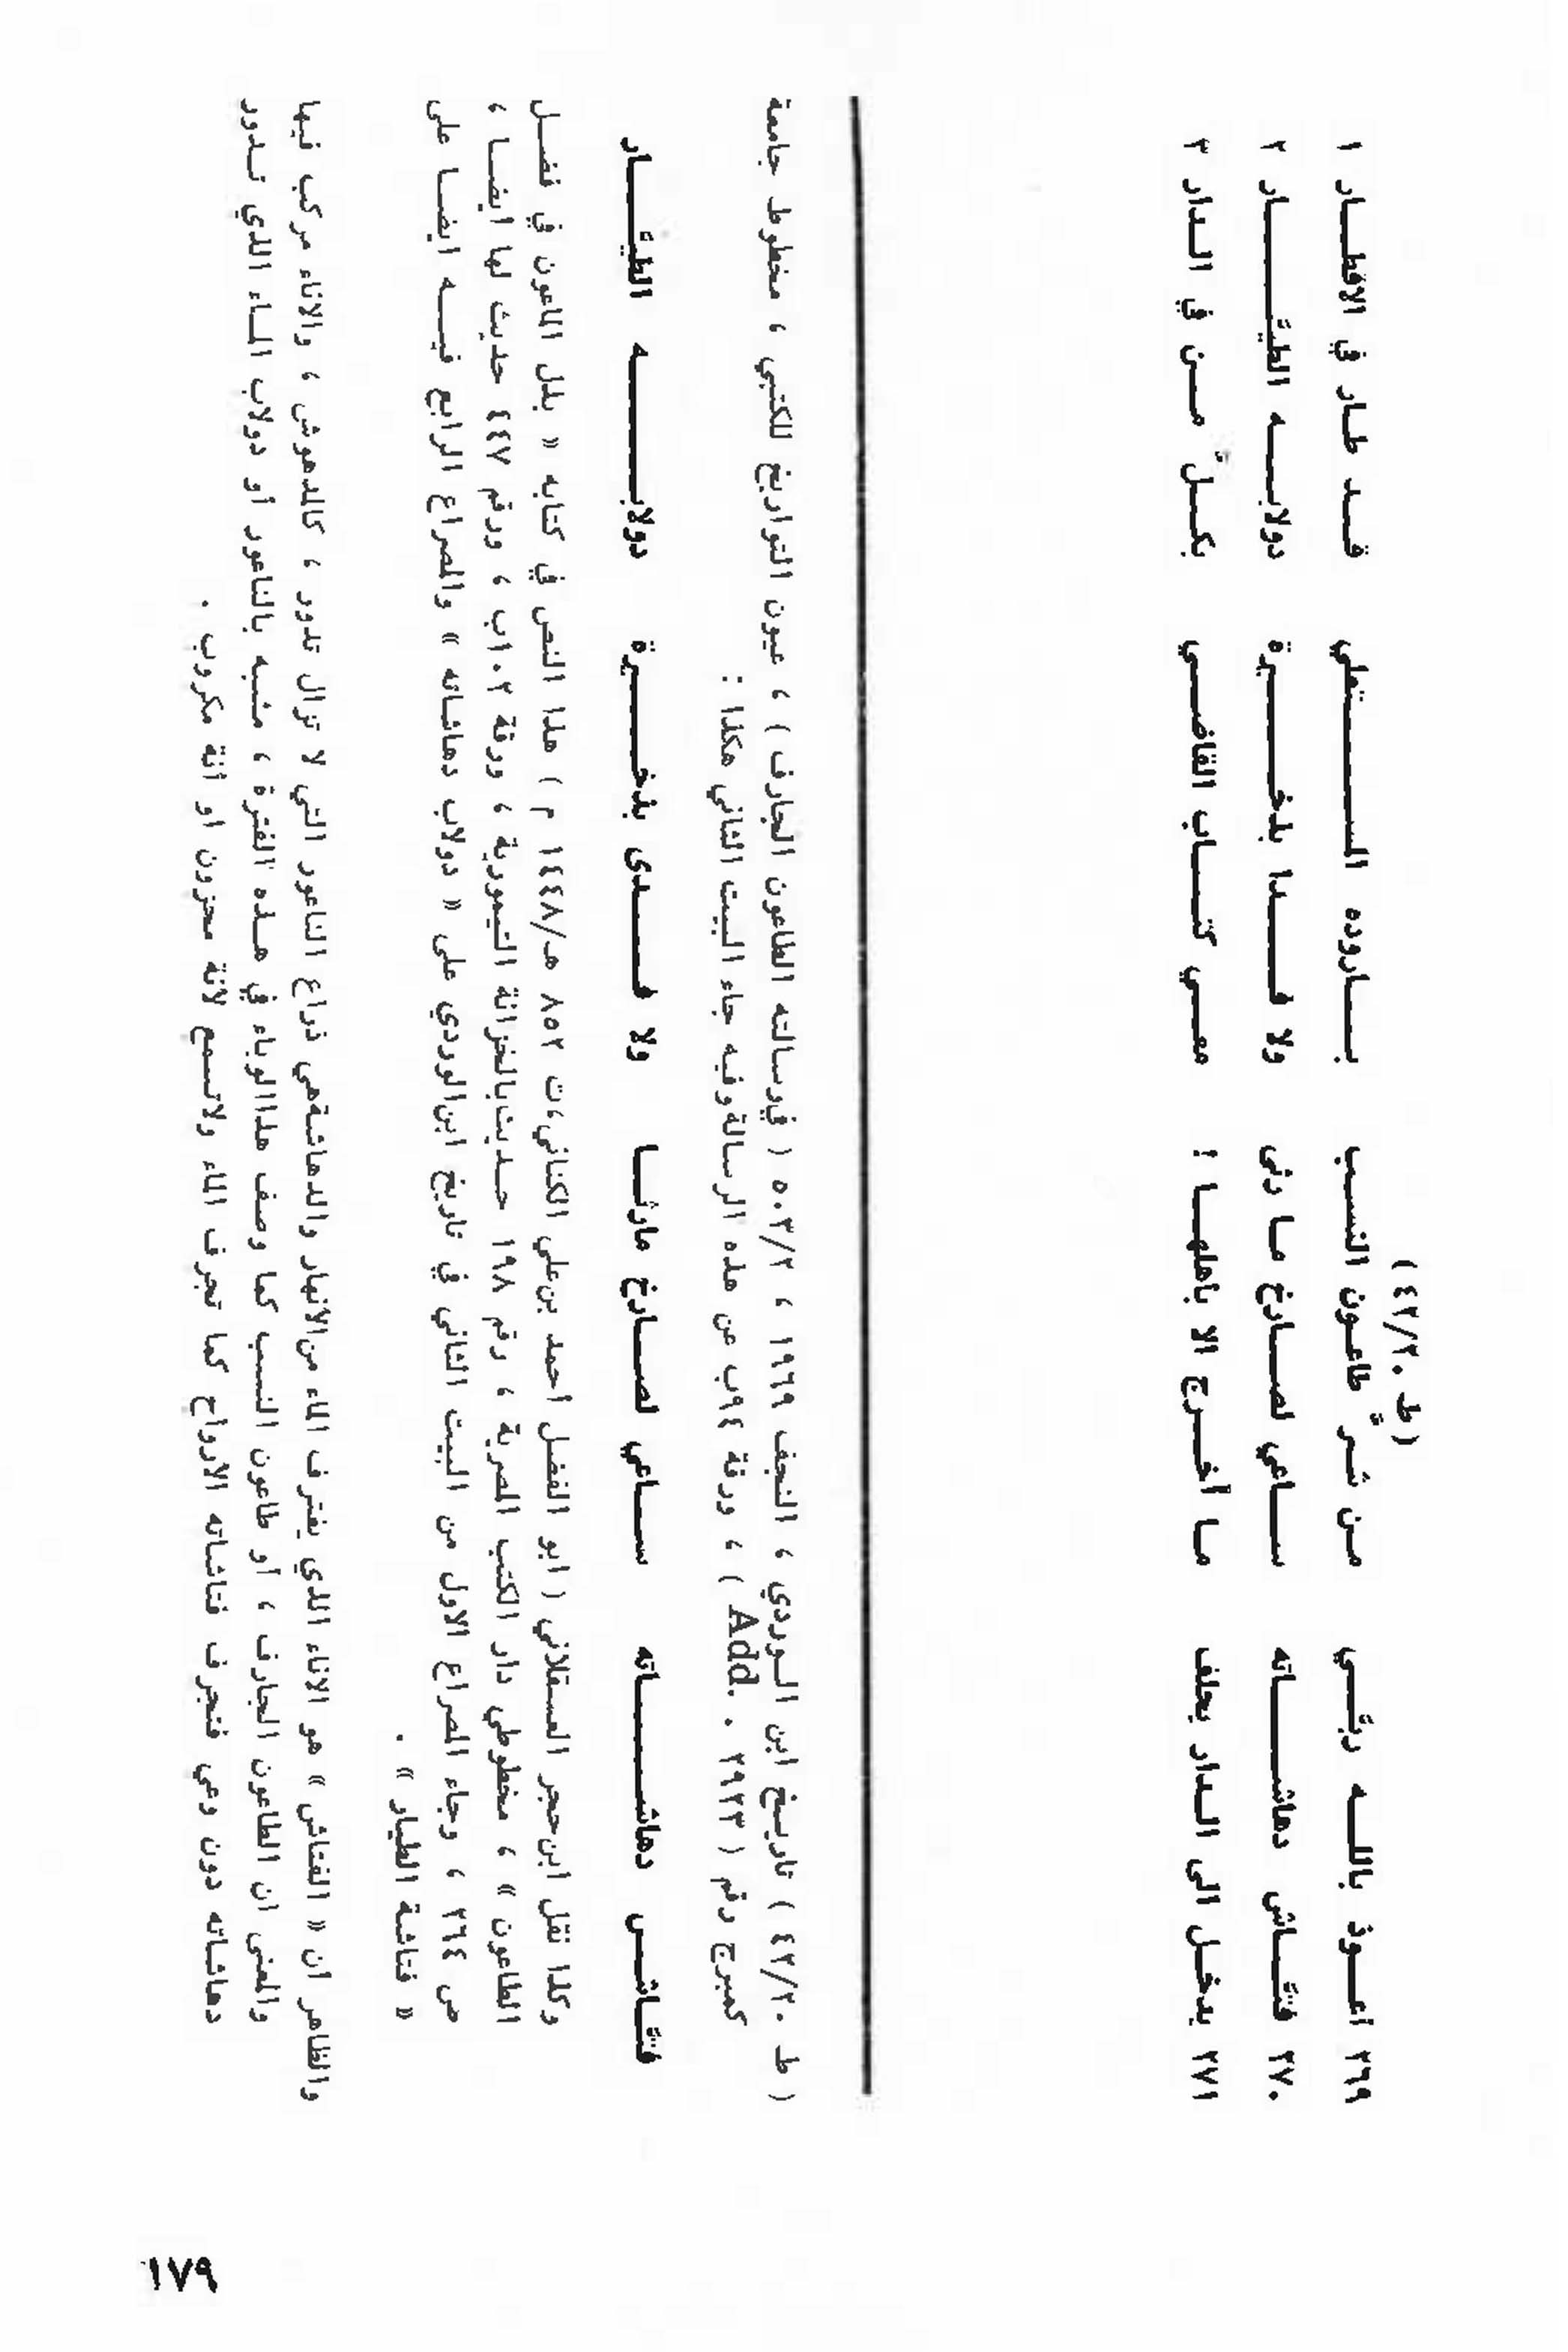 ( ط ٤٢/٢٠ )
٢٦٩ أعـوذ باللـه ربّـي من شـرِّ طاعـون النسب بـــاروده المســـتعلي قـد طـار في الاقطـار ١
٢٧٠ فتّـاش دهاشـــاته ســاعي لصـارخ مـا رثى ولا فـــدا بذخـــيرة دولابـــه الطيّـــار ٢
٢٧١ يدخـل الى الـدار يحلف مـا أخـرج الا باهلهـا : معـي كتـاب القاضـي بكـلّ مـن في الـدار ٣
( ط ٤٢/٢٠ ) تاريـخ ابن الـوردي ، النجف ١٩٦٩ ، ٥٠٣/٢ ( في رسالته الطاعون الجارف ) ، عيون التواريخ للكتبي ، مخطوط جامعة
كمبرج رقم ( ٢٩٢٣ . Add ) ، ورقة ٩٤ب عن هذه الرسالة وفيه جاء البيت الثاني هكذا :
فتّـاش دهاشـــاته ســاعي لصـارخ مارثـا ولا فـــدى بذخـــيرة دولابـــه الطيّـــار
وكذا نقل ابن حجر العسقلاني ( ابو الفضل احمد بن علي الكناني ، ت ٨٥٢ هـ/١٤٤٨ م ) هذا النص في كتابه « بذل الماعون في فضـل
الطاعون » ، مخطوطي دار الكتب المصرية ، رقم ١٩٨ حـديث بالخزانة التيمورية ، ورقة ١٠٢ب ، ورقم ٤٤٧ حديث لها ايضـا ،
ص ٢٦٤ ، وجاء المصراع الاول من البيت الثاني في تاريخ ابن الوردي على « دولاب دهاشاته » والمصراع الرابع فيـه ايضـا على
« فتاشة الطيار » .
والظاهر أن « الفتاش » هو الاناء الذي يغترف الماء من الانهار والدهاشة هي ذراع الناعور التي لا تزال تدور ، كالمدهوش ، والاناء مركب فيها
والمعنى ان الطاعون الجارف ، أو طاعون النسب كما وصف هذا الوباء في هـذه الفترة ، مشبه بالناعور أو دولاب المـاء الذي تـدور
دهاشاته دون وعي فتجرف فتاشاته الارواح كما تجرف الماء ولاتسمع لانة محزون او انة مكروب .
١٧٩